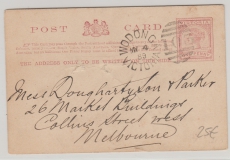 POST CARD
THE ADDRESS ONLY TO BE WRITTEN ON THIS SIDE
WODONGA
VICTORIA
Mess Dougharty Son & Parker
26 Market Buildings
Collins Street West
Melbourne
25€